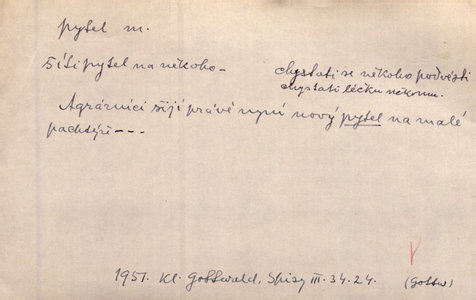 pytel m.
šíti pytel na někoho –
chystati se někoho podvésti
chystati léčku někomu.
Agrárníci šijí právě nyní nový pytel na malé
pachtýře – – –
1951. Kl. Gottwald, Spisy III. 34.24.
(Gottw)